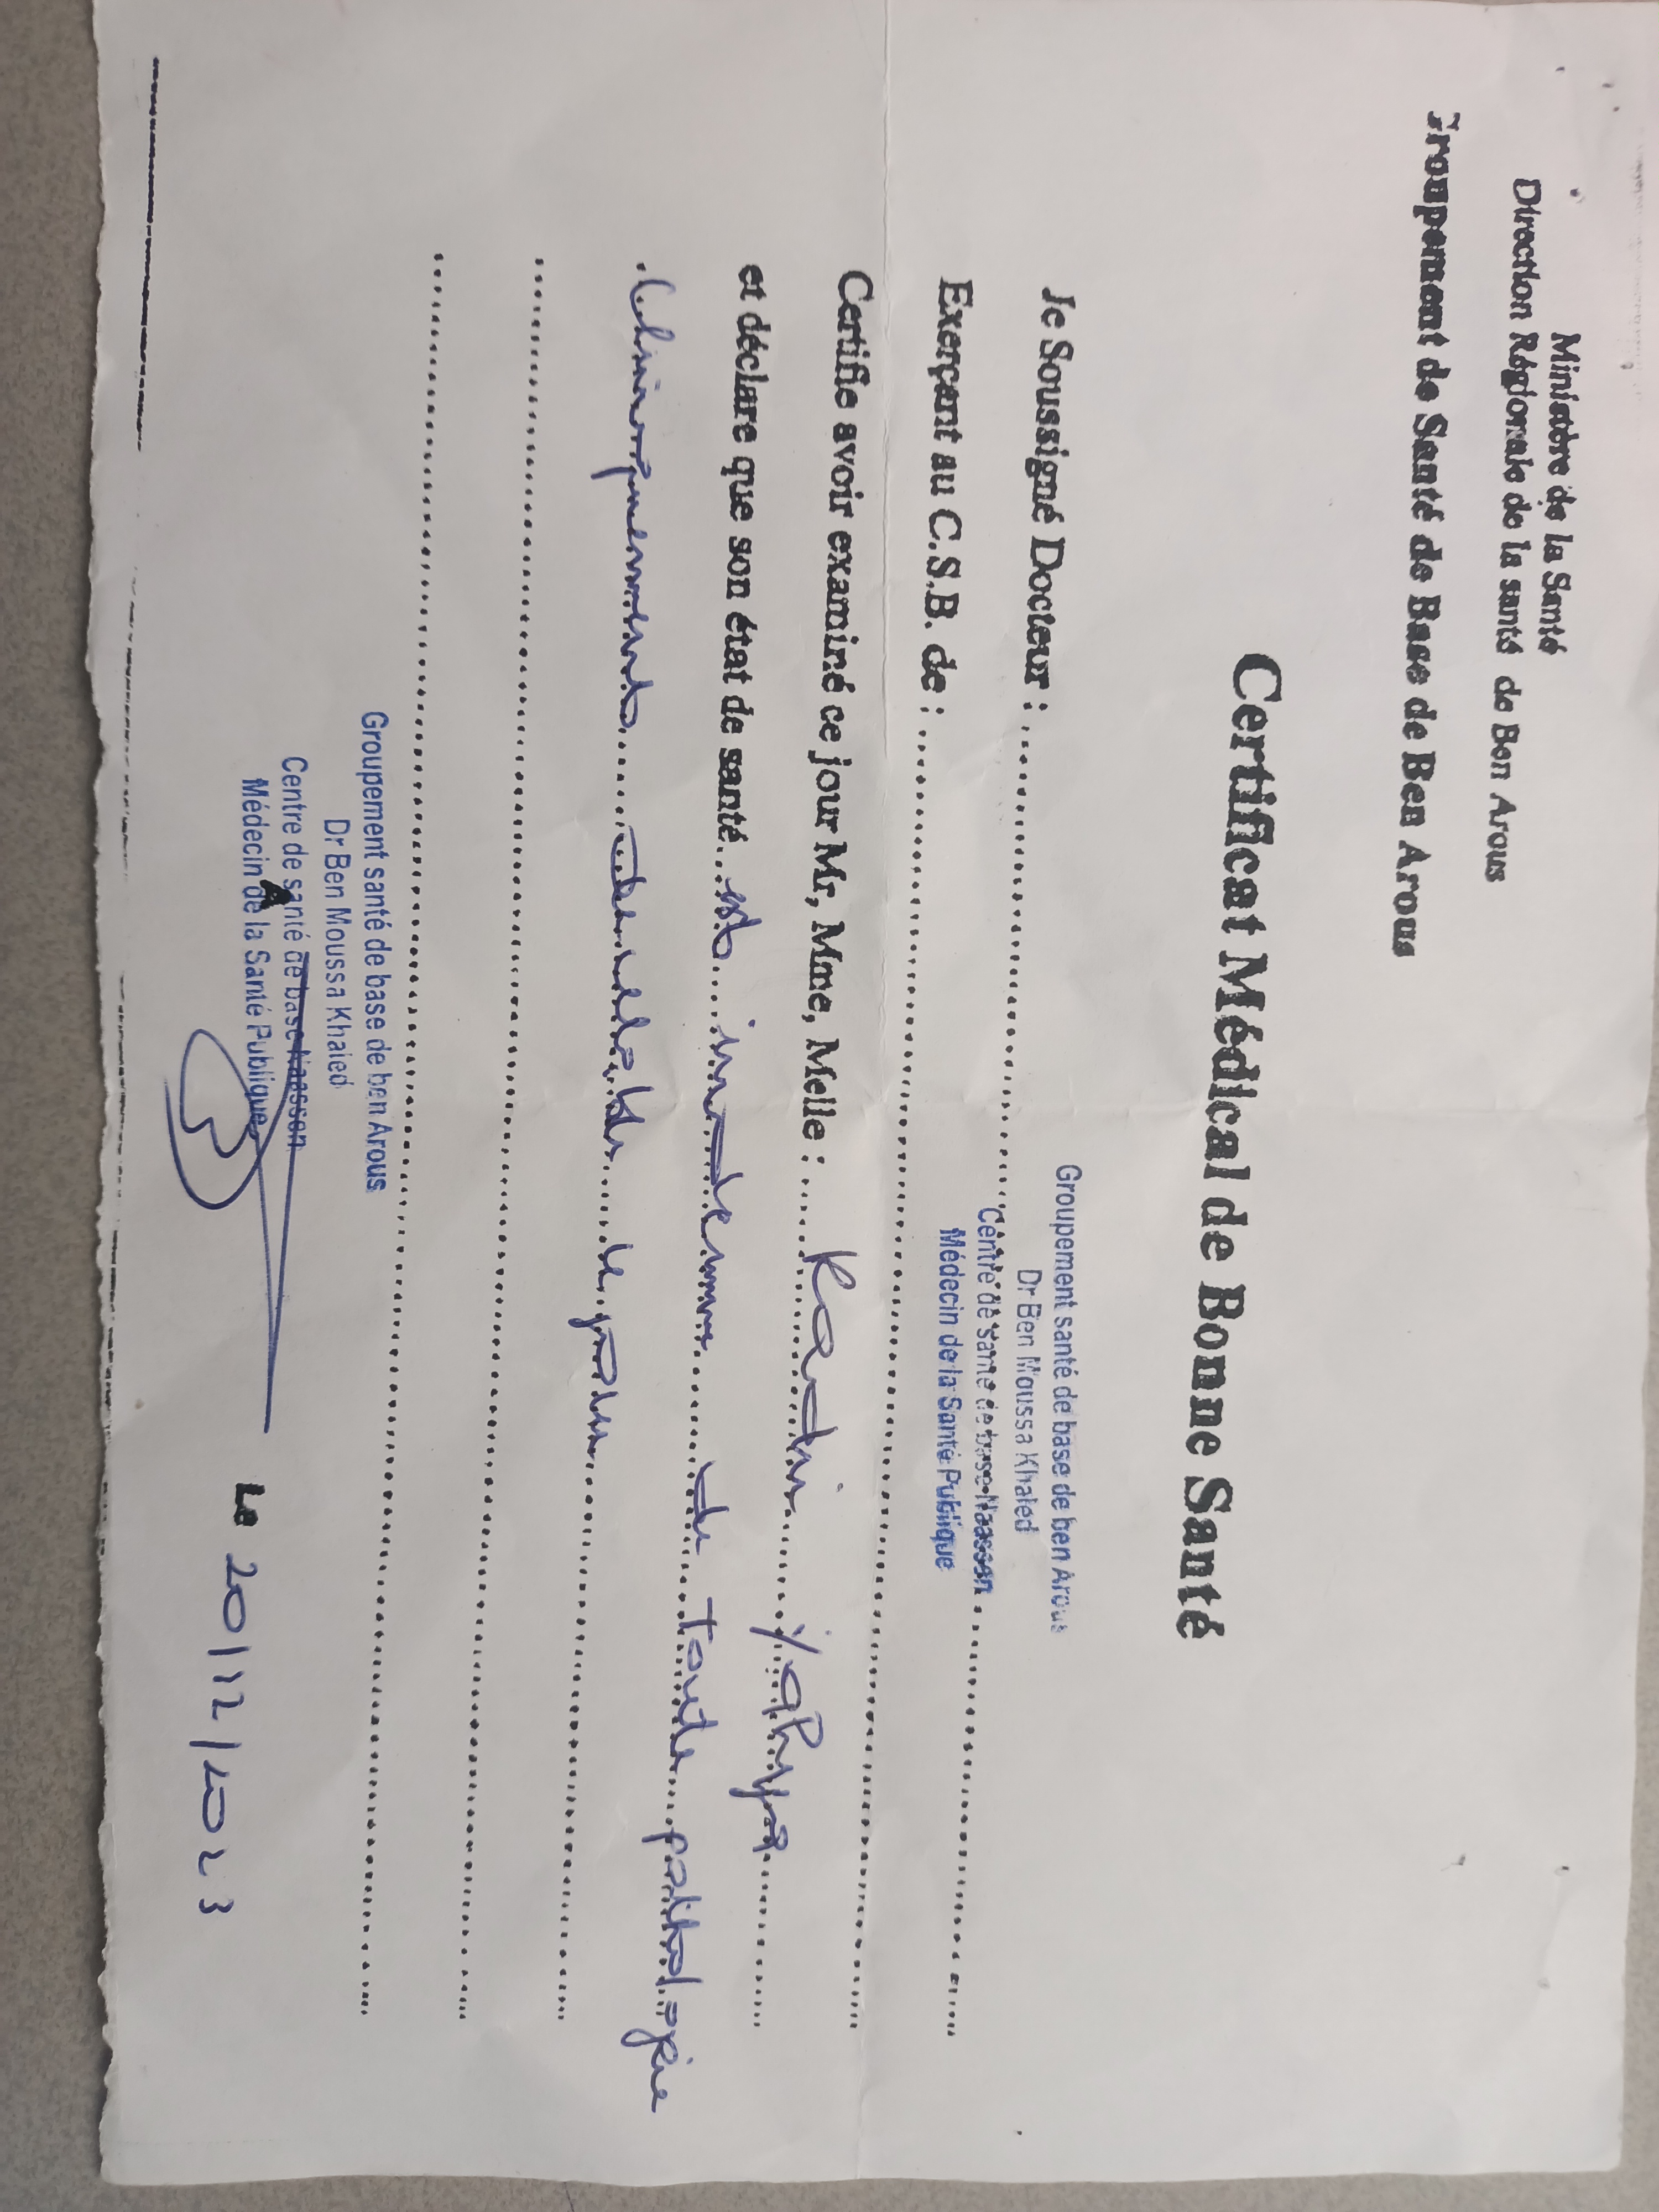 Ministère de la Santé
Direction Régionale de la santé de Ben Arous
Groupement de Santé de Base de Ben Arous
Certificat Médical de Bonne Santé
Groupement santé de base de ben Arous
Je Soussigné Docteur : Dr Ben Moussa Khaled
Centre de santé de base Naassen
Exerçant au C.S.B. de : Médecin de la Santé Publique
Certifie avoir examiné ce jour Mr, Mme, Melle : Kadri Yahya
et déclare que son état de santé est indemne de toute pathologie
Cliniquement décelable le jour
Groupement santé de base de ben Arous
Dr Ben Moussa Khaled
Centre de santé de base Naassen
Médecin de la Santé Publique
A
Le 20/12/2023